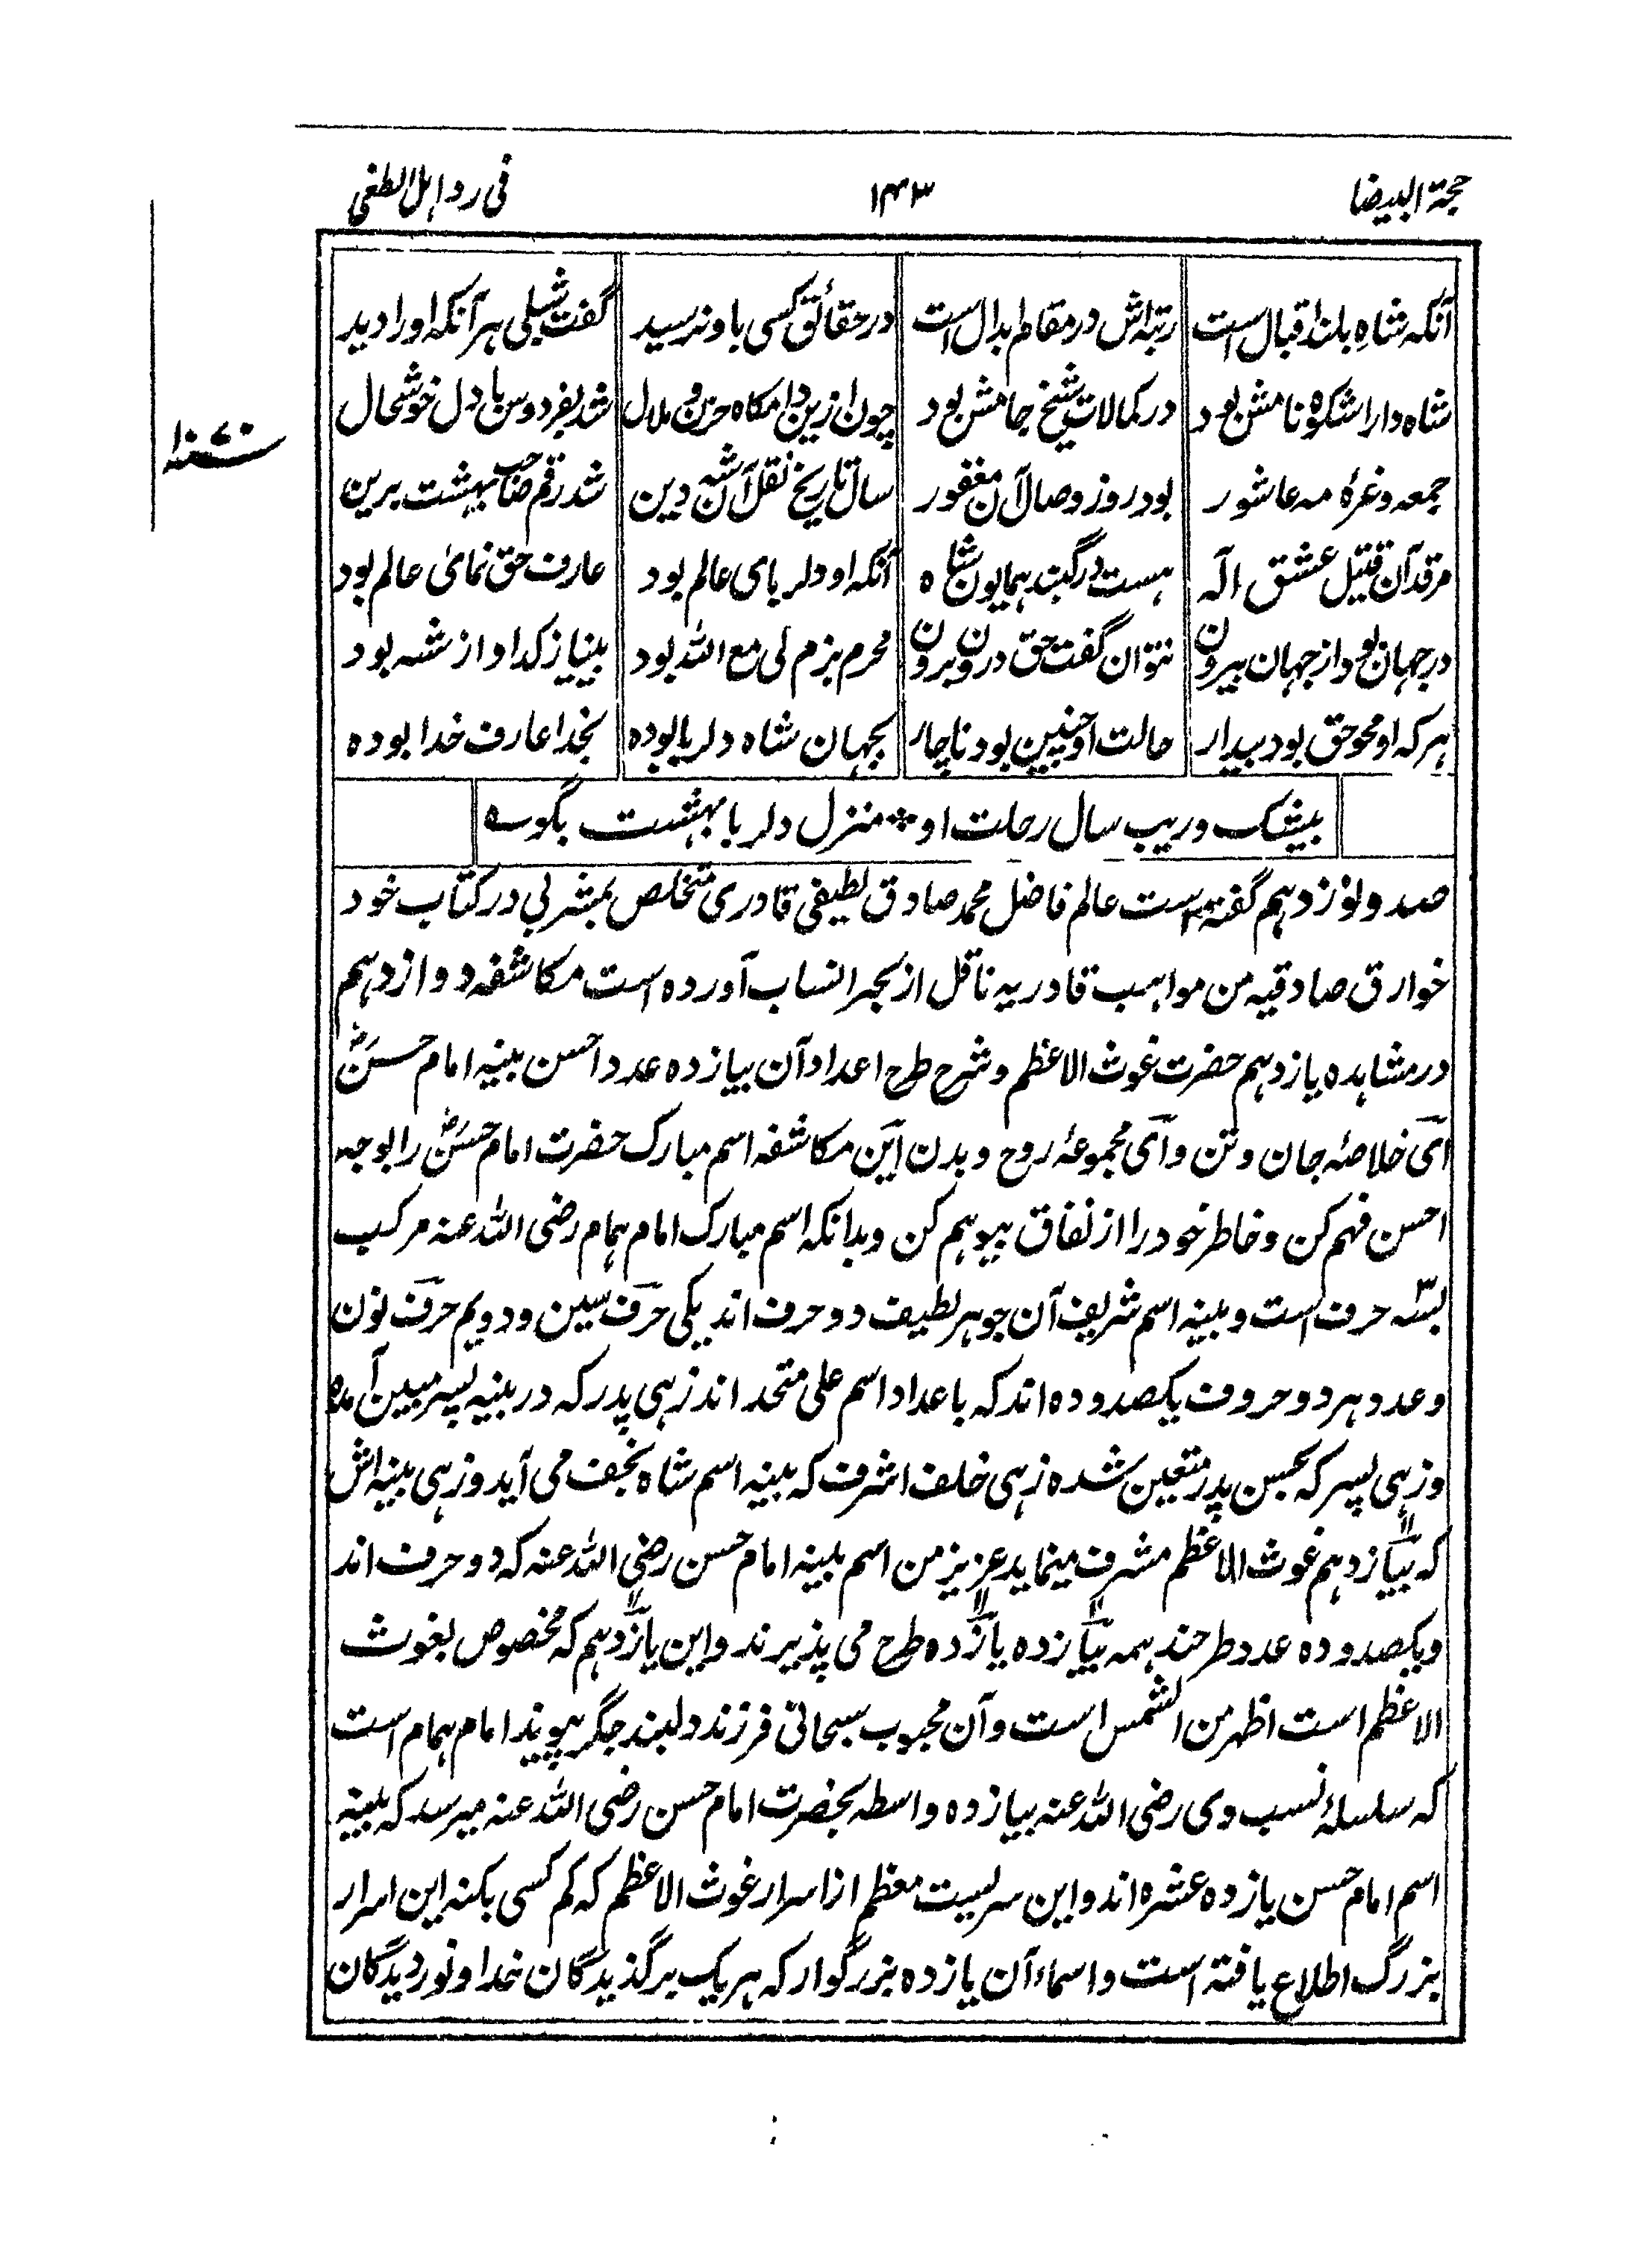 حجة البیضا ۱۴۳ فی رد اہل الطغی
آنکه شاه بلند اقبال است رتبه اش در مقام ابدال است در حقائق کسی باو نرسید گفت شبلی هر آنکه او را دید
شاه دارا شکوه نامش بود در کمالات شیخ جامش بود چون ازین دامگاه حزن و ملال شد بفردوس با دل خوشحال
جمعه و غرهٔ مه عاشور بود روز وصال آن مغفور سال تاریخ نقل آن شه دین شد رقم صاحب بهشت برین
۱۰۷۰ سنه
مرقد آن قتیل عشق اله هست در گنبد همایون شاه آنکه او دلربای عالم بود عارف حق نمای عالم بود
در جهان بود از جهان بیرون نتوان گفت حق درون و برون محرم بزم لی مع الله بود بینیاز گدا و از شه بود
هر که او محو حق بود بیدار حالت او چنین بود ناچار بجهان شاه دلربا بوده بخدا عارف خدا بوده
بیشک و ریب سال رحلت او * منزل دلربا بهشت بگوے
صد و نوزدهم گفته است عالم فاضل محمد صادق لطیفی قادری متخلص بمشربی در کتاب خود
خوارق صادقیه من مواهب قادریه ناقل از بحر انساب آورده است مکاشفه دوازدهم
در مشاهده یازدهم حضرت غوث الاعظم و شرح طرح اعداد آن بیازده عدد احسن بینه امام حسنؓ
ای خلاصهٔ جان و تن و ای مجموعهٔ روح و بدن این مکاشفه اسم مبارک حضرت امام حسنؓ را بوجه
احسن فهم کن و خاطر خود را از نفاق بیوهم کن و بدانکه اسم مبارک امام همام رضی الله عنه مرکب
بسه حرف است و بینه اسم شریف آن جوهر لطیف دو حرف اند یکی حرف سین و دویم حرف نون
و عدد هر دو حروف یکصد و ده اند که با عداد اسم علی متحد اند زهی پدر که در بینه پسر مبین آمده
و زهی پسر که بحسن پدر متعین شده زهی خلف اشرف که بینه اسم شاه نجف می آید و زهی بینه اش
که بیازدهم غوث الاعظم مشرف مینماید عزیز من اسم بینه امام حسن رضی الله عنه که دو حرف اند
و یکصد و ده عدد طرحند همه بیازده یازده طرح می پذیرند و این یازدهم که مخصوص بغوث
الاعظم است اظهر من الشمس است و آن محبوب سبحانی فرزند دلبند جگر پیوند امام همام است
که سلسلهٔ نسب وی رضی الله عنه بیازده واسطه بحضرت امام حسن رضی الله عنه میرسد که بینه
اسم امام حسن یازده عشره اند و این سریست معظم از اسرار غوث الاعظم که کم کسی بکنه این اسرار
بزرگ اطلاع یافته است و اسماء آن یازده بزرگوار که هریک برگذیدگان خدا و نور دیدگان